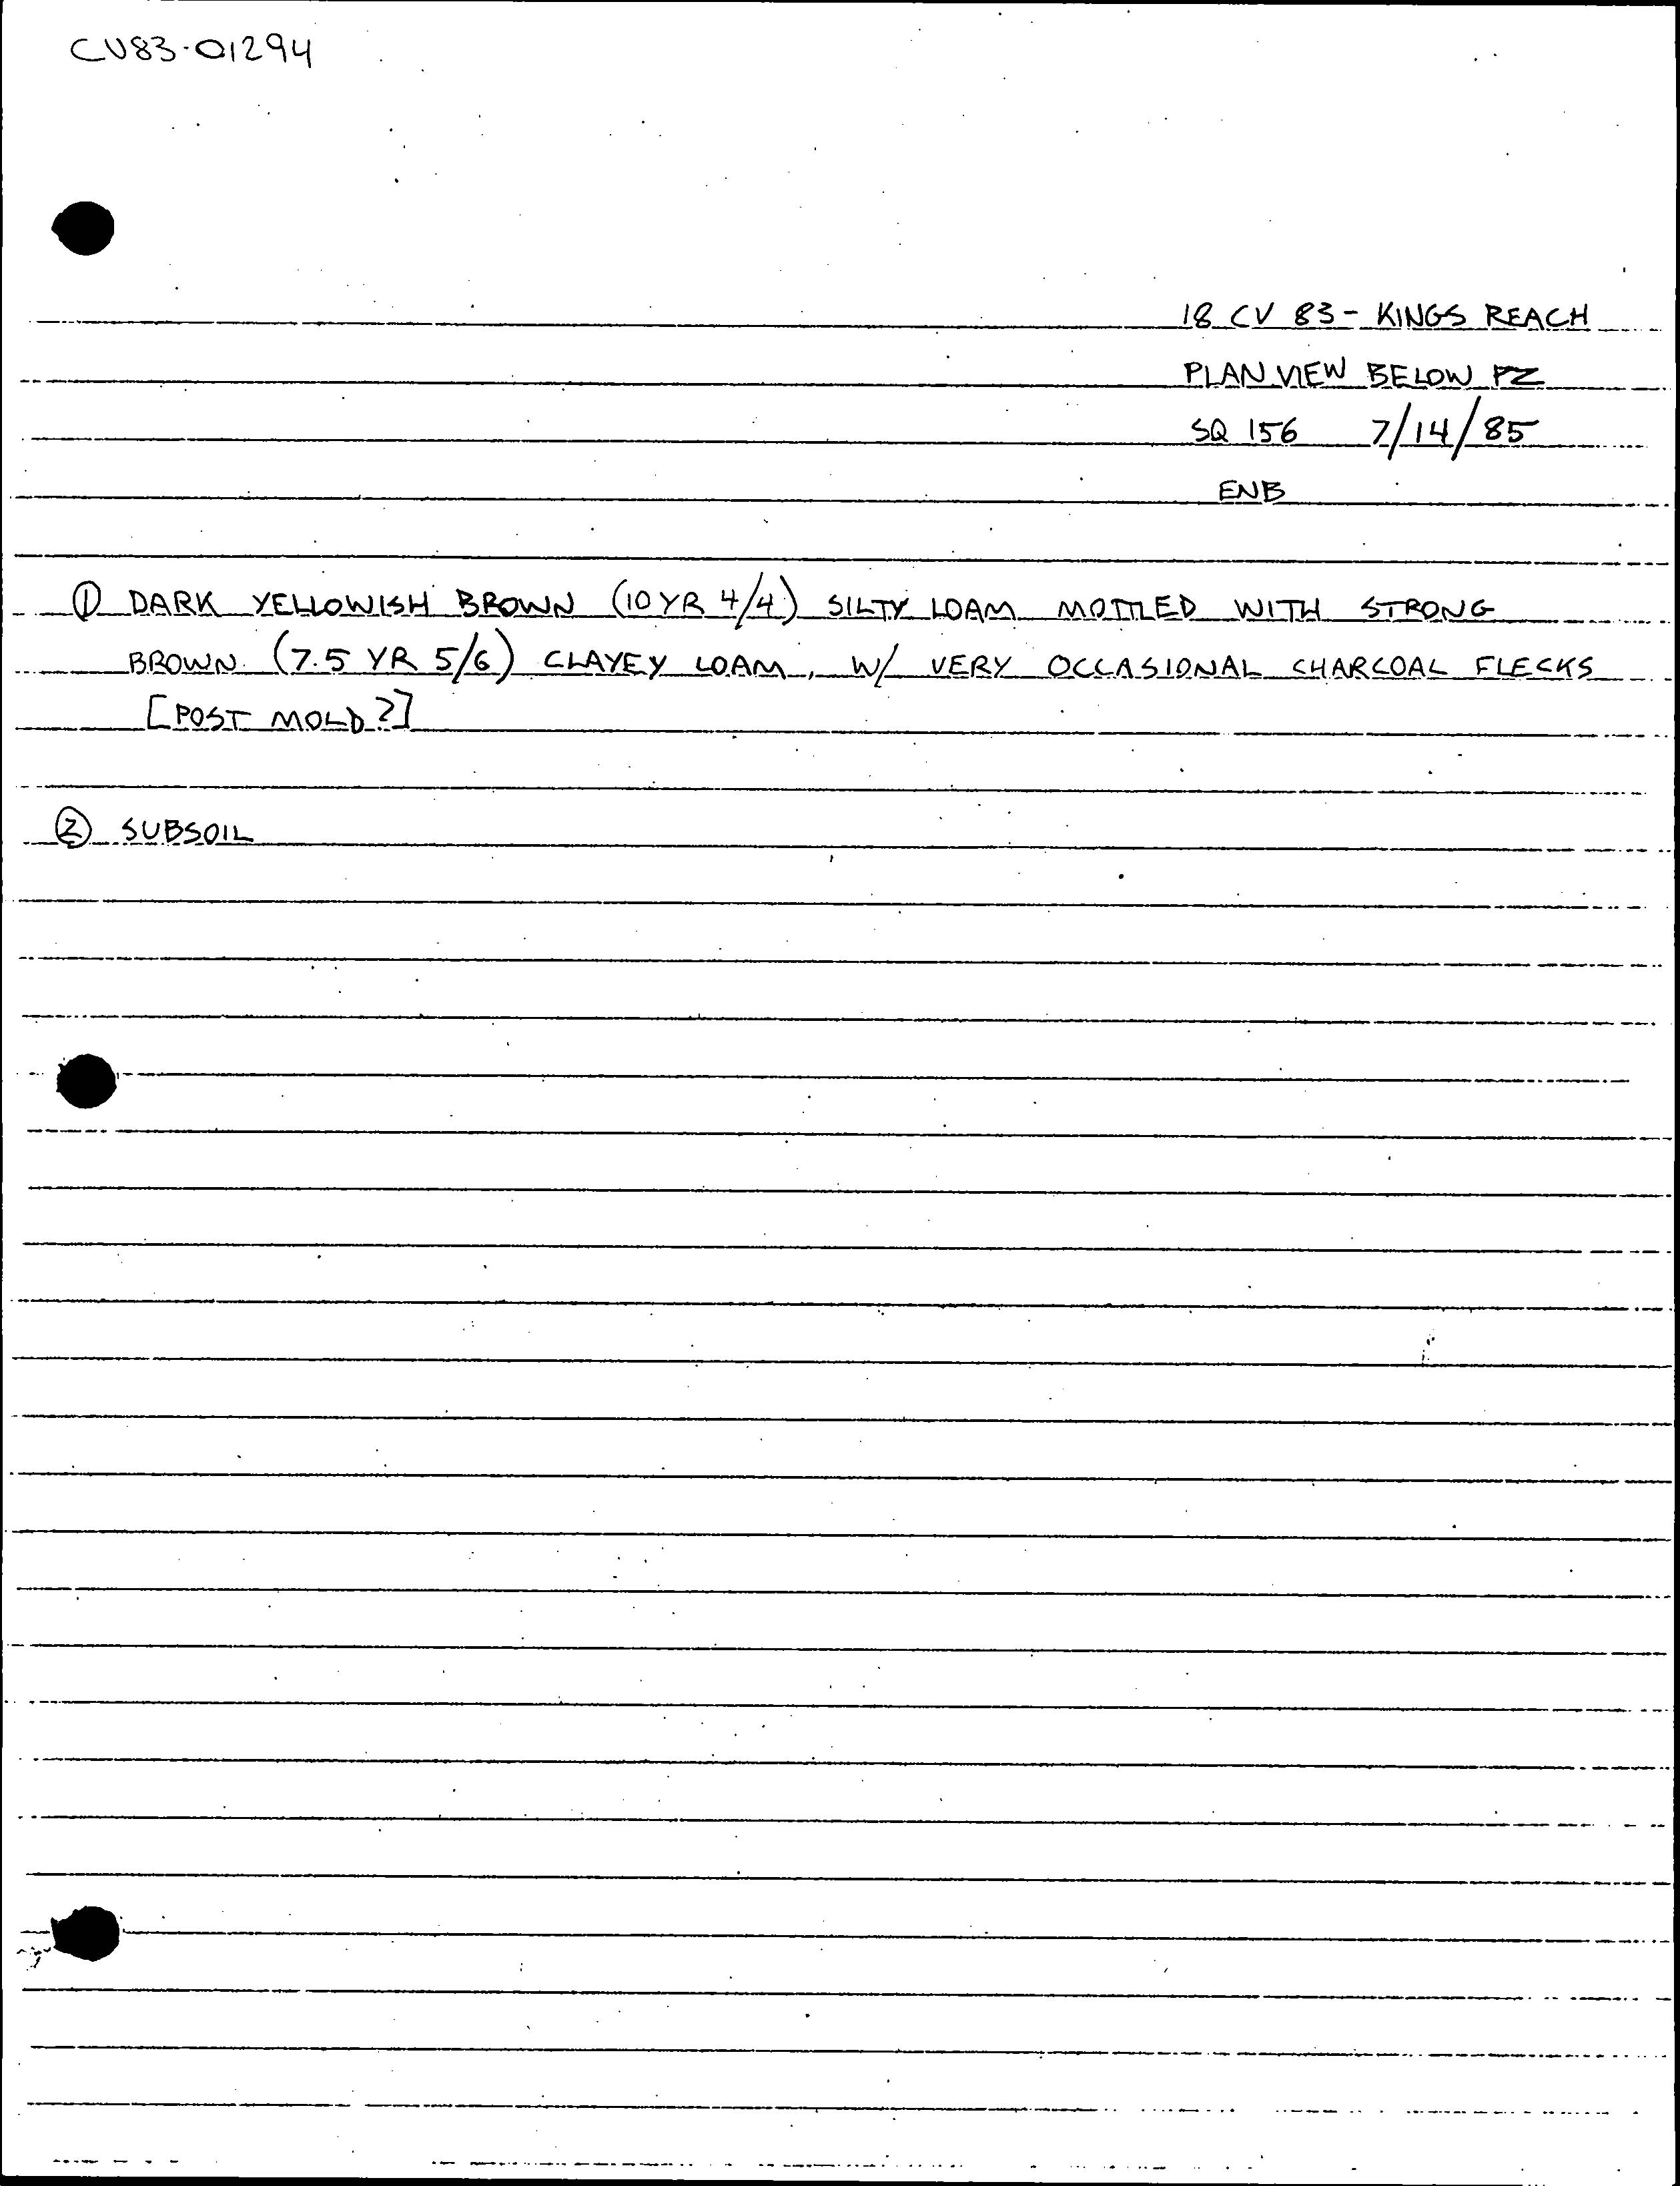 CV83-01294
18 CV 83 - KINGS REACH
PLAN VIEW BELOW PZ
SQ 156 7/14/85
ENB
① DARK YELLOWISH BROWN (10 YR 4/4) SILTY LOAM MOTTLED WITH STRONG
BROWN (7.5 YR 5/6) CLAYEY LOAM, W/ VERY OCCASIONAL CHARCOAL FLECKS
[POST MOLD?]
② SUBSOIL